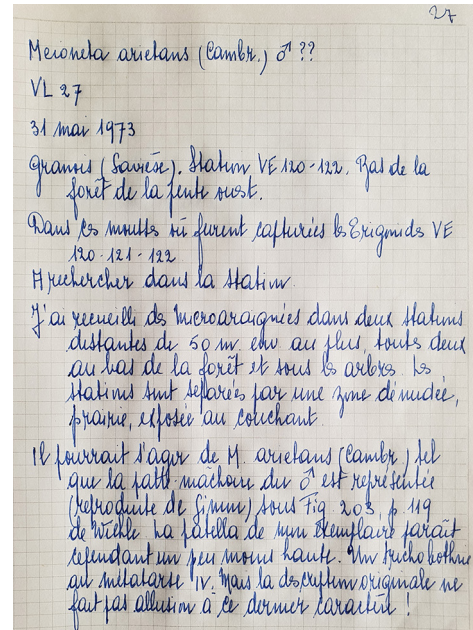 27
Meioneta arietans (Cambr.) ♂ ??
VL 27
31 mai 1973
Granois (Savièse). Station VE 120-122. Bas de la
forêt de la pente ouest.
Dans les mousses où furent capturées les Erigonides VE
120-121-122
A rechercher dans la station
J'ai recueilli des microaraignées dans deux stations
distantes de 50 m env au plus, toutes deux
au bas de la forêt et sous les arbres. Les
stations sont séparées par une zone dénudée,
prairie, exposée au couchant.
Il pourrait s'agir de M. arietans (Cambr.) tel
que la patte-mâchoire du ♂ est représentée
(reproduite de Simon) sous Fig. 203, p. 119
de Wiehle. La patella de mon exemplaire paraît
cependant un peu moins haute. Un trichobothrie
au métatarse IV. Mais la description originale ne
fait pas allusion à ce dernier caractère !